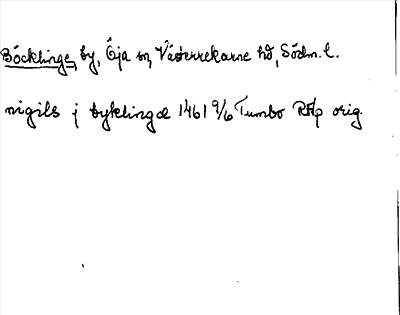 Böcklinge, by, Öja sn, Västerrekarne hd, Södm. l.
nigils j byklingæ 1461 9/6 Tumbo RAp orig.